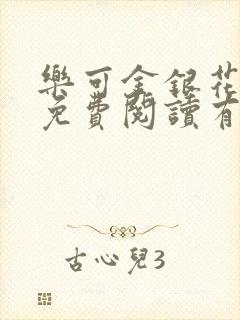 樂可金銀花
免費閱讀有
古心兒3